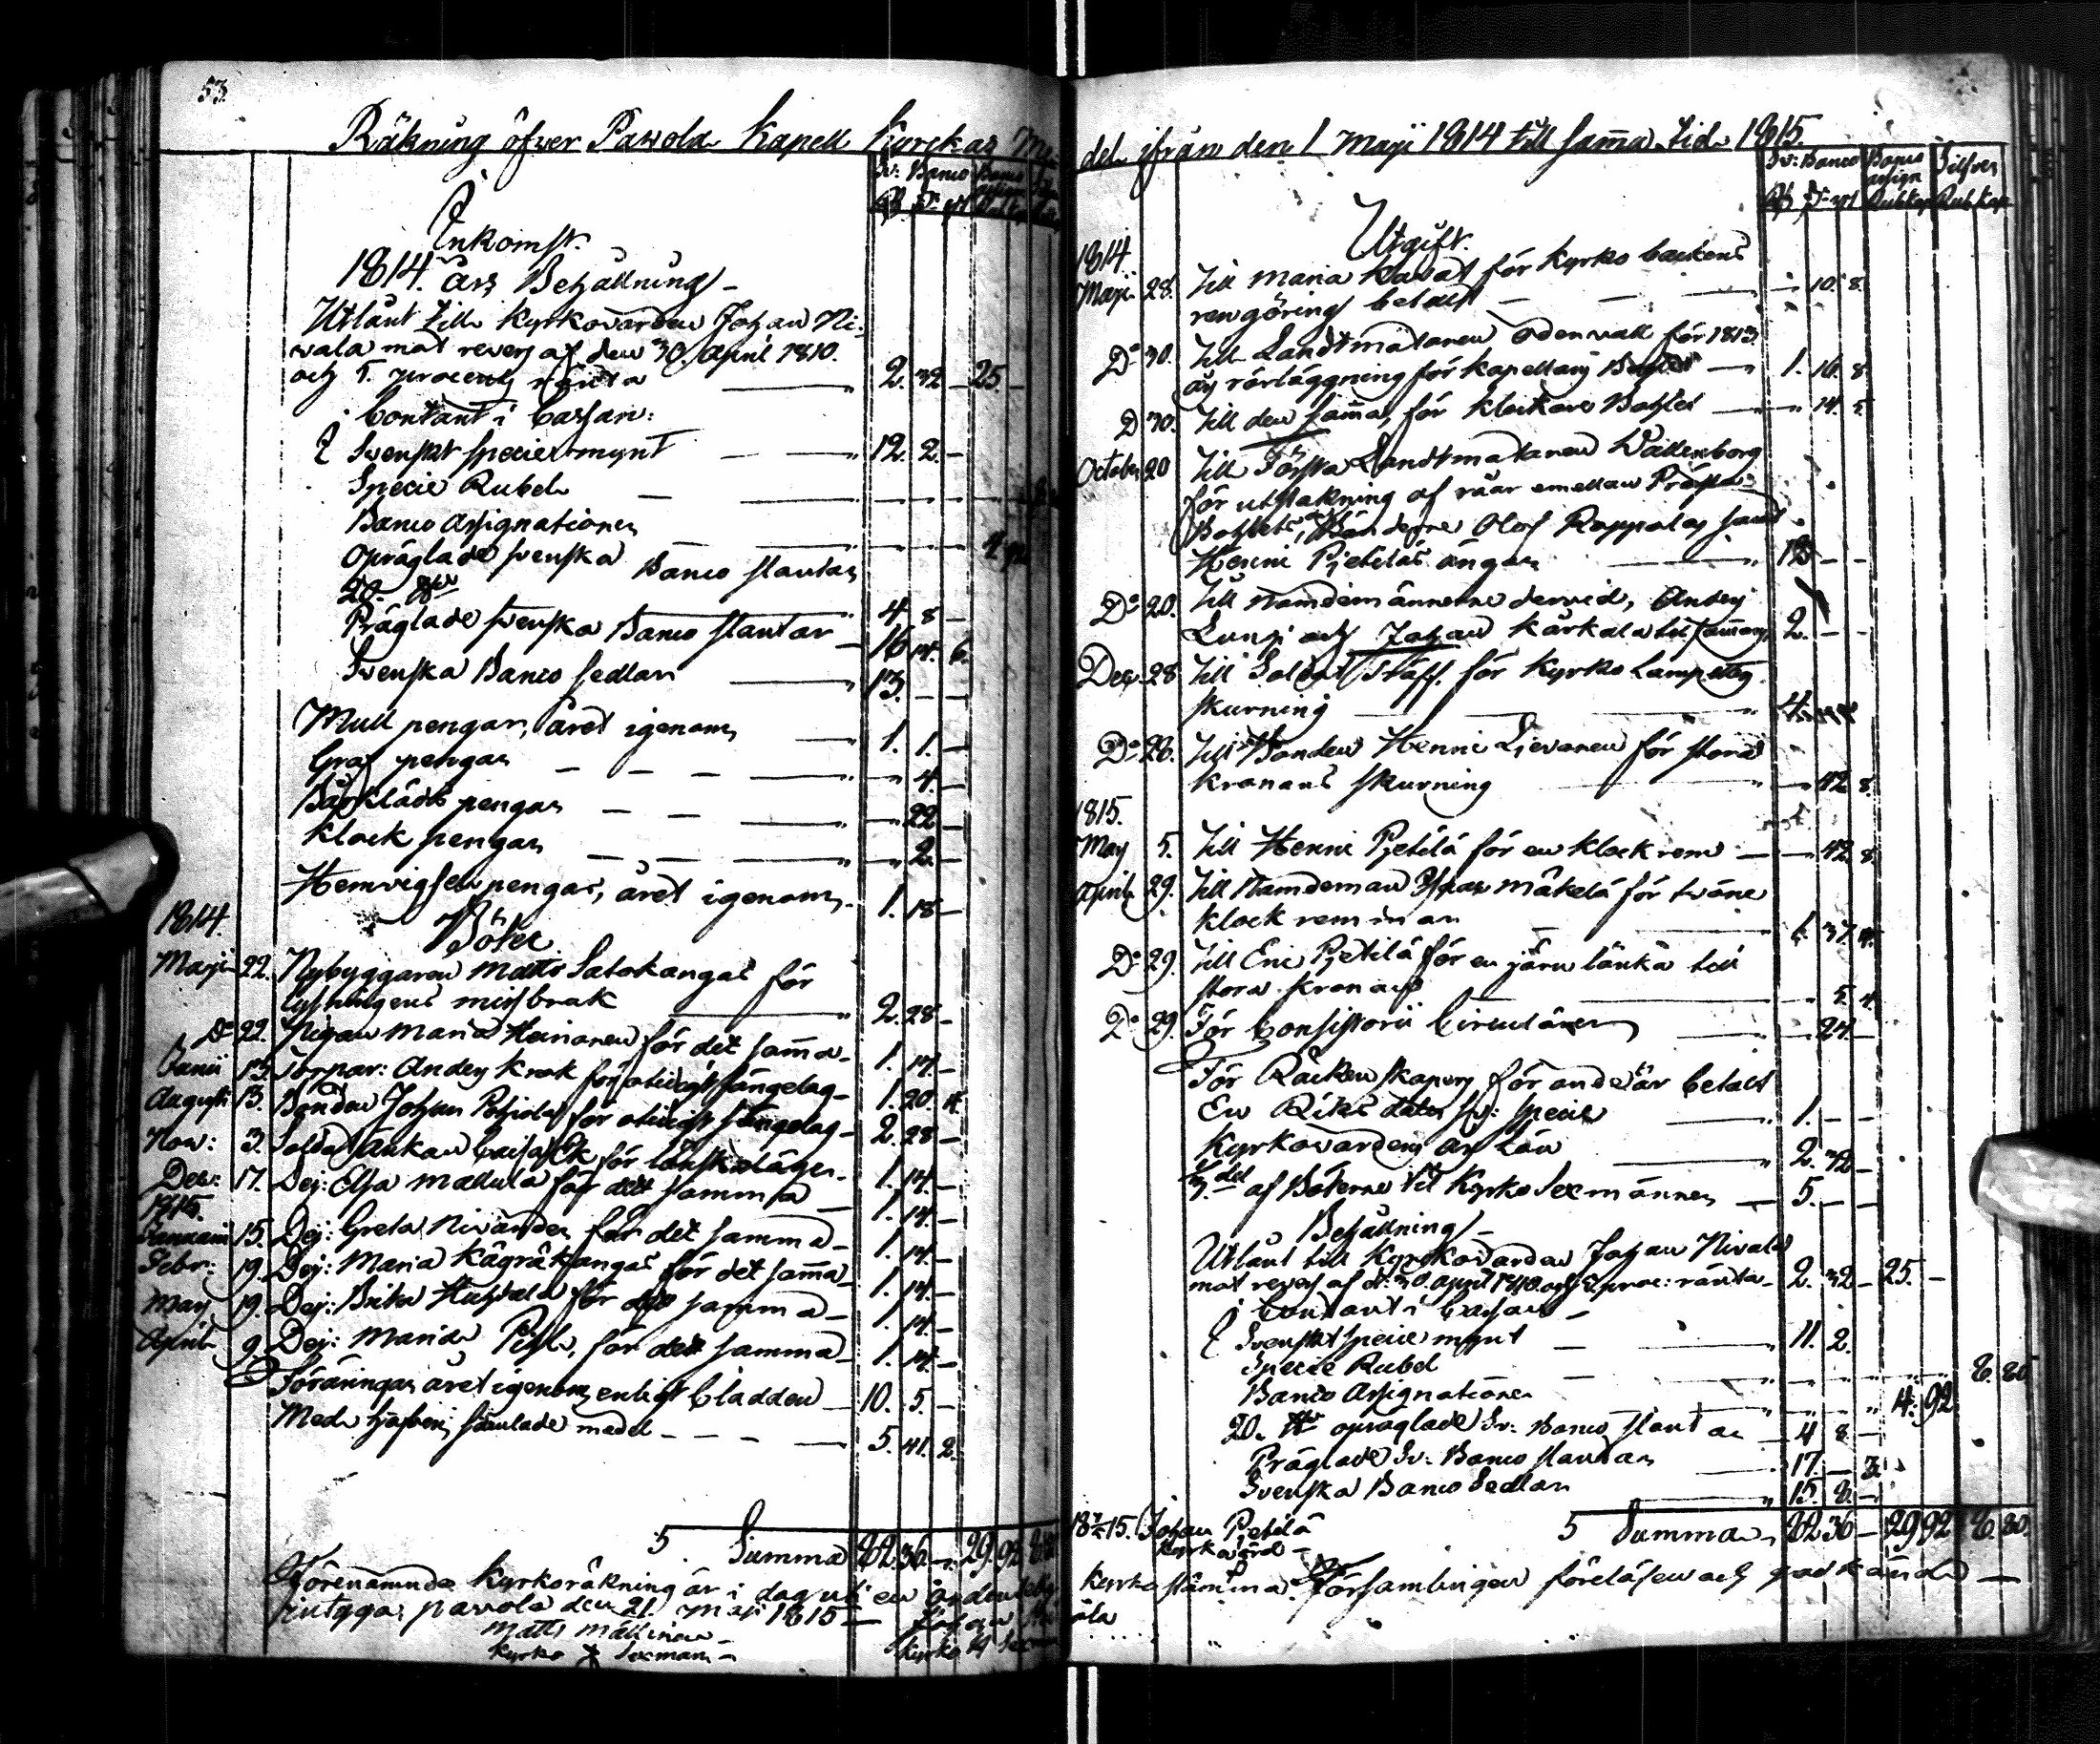 53.
Räkning öfver Pawola Kapell Kyrckas Me
Sv: Banco Banco assign
Inkomst.
1814. års Behållning
Utlånt till Kyrkovärden Johan Ni-
vala mot revers af den 30 April 1810.
och 5. procents ränta 2. 32 – 25. –
Contant i Cassan:
Svenskt specie mynt 12. 2. –
Specie Rubel
Banco Assignationer 4 92
Opräglade svenska Banco slantar
20. 4. 8 –
Präglade svenska Banco slantar 16 14. 6.
Svenska Banco sedlar 13. – –
Mull pengar, året igenom 1. 1. –
Graf pengar 4. –
Bårkläds pengar 22 –
Klock pengar 2. –
Hemvigsel pengar, året igenom 1. 18 –
1814. Böter
Maji 22. Nybyggaren Matts Satokangas för
lysningens missbruk 2. 28 –
Do 22. Pigan Maria Heinonen för det samma 1. 14. –
Junii 13. Torpar: Anders Krok för otidigt sängelag 1. 20. 4.
Augusti 13. Bonden Johan Pohjola för otidigt sängelag 2. 28 –
Nov: 3. Soldat Änkan Caisa för lönskaläger 1. 14. –
Dec: 17. Dej: Elsa Mattula för det samma 1. 14. –
1815.
Januarii 15. Dej: Greta Nivander för det samma 1. 14. –
Febr: 19. Dej: Maria Kägräkangas för det samma 1. 14. –
Mars 19. Dej: Brita för det samma 1. 14. –
April 9. Dej: Maria för det samma 1. 14. –
Föräringar året igenom enligt Cladden 10. 5. –
Med håfven samlade medel 5. 41. 2.
5 Summa 82. 36. – 29. 92
Förenämnde Kyrkoräkning är i dag uti en
Pawola den 21. Maji 1815 – Johan
Matts Mällinen
Kyrko Sexman Kyrko Sex
del ifrån den 1 Maji 1814 till samma tid 1815.
Sv: Banco Banco assign Silfver
Rub kop Rub kop
Utgift.
1814.
Maji 28. Till Maria Kavat för Kyrko backens
rengöring betalt 10. 8.
Do 30. Till Landtmätaren Odenwall för 1813
års rörläggning för Kapellans Bohlet 1. 16. 8
D 30. Till den samma, för Klockare Bohlet 14. 5
October 20 Till Första Landtmätaren Wallenborg
för utstakning af råår emellan Prästa
Bohlets, Bönderne Olof Rappalas samt
Henric Pjetiläs ängar 12 – –
Do 20. Till Nämdemännerne dervid, Anders
Lungi och Johan Kärkala tillsammans 2. – –
Dec. 28 Till Soldat Staff. för Kyrko Lampettes
skurning
Do 28. Till Bonden Henric Ljevonen för stora
Kronans skurning 42 8.
1815.
May 5. Till Henric Pjetilä för en klockrem 42 8.
April 29. Till Nämdeman Mäkelä för tväne
klock remmar 1. 37. 4.
Do 29. Till Eric Pjetilä för en järn länka till
stora Kronan 5. 4.
Do 29. För Consistorii Circulärer 24. –
För Räkenskapens förande är betalt
En Riksdaler Sv: Specie 1. – –
Kyrkovärdens Års Lön 2. 32 –
del af Böterne till Kyrko Sexmännen 5. – –
Behållning
Utlånt till Kyrkovärden Johan Nivala
mot revers af d: 30. April 1810 och 5 proc: ränta 2. 32 – 25. –
Contant i Cassan –
Svenskt specie mynt 11. 2.
Specie Rubel 8. 80
Banco Assignationer 4. 92
20. opräglade Sv: Banco slantar 4 8. –
Präglade Sv: Banco slantar 17. – 3.
Svenska Banco Sedlar 15. 8. –
Johan Pjetilä 5 Summa 82 36 – 29 92 8. 80.
Kyrkovärd –
Kyrko stämma Församlingen föreläsen och godkänd
äla